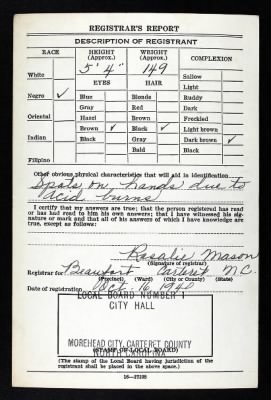 REGISTRAR'S REPORT
DESCRIPTION OF REGISTRANT
RACE HEIGHT (Approx.) WEIGHT (Approx.) COMPLEXION
5' 4" 149
White Sallow
EYES HAIR Light
Negro ✓ Blue Blonde Ruddy
Gray Red Dark
Oriental Hazel Brown Freckled
Brown ✓ Black ✓ Light brown
Indian Black Gray Dark brown ✓
Bald Black
Filipino
Other obvious physical characteristics that will aid in identification
Spots on hands due to
acid burns
I certify that my answers are true; that the person registered has read
or has had read to him his own answers; that I have witnessed his sig-
nature or mark and that all of his answers of which I have knowledge are
true, except as follows:
Rosalie Mason
(Signature of registrar)
Registrar for Beaufort Carteret N.C.
(Precinct) (Ward) (City or County) (State)
Date of registration Oct. 16 1940
LOCAL BOARD NUMBER 1
CITY HALL
MOREHEAD CITY, CARTERET COUNTY
NORTH CAROLINA
(STAMP OF LOCAL BOARD)
(The stamp of the Local Board having jurisdiction of the
registrant shall be placed in the above space.)